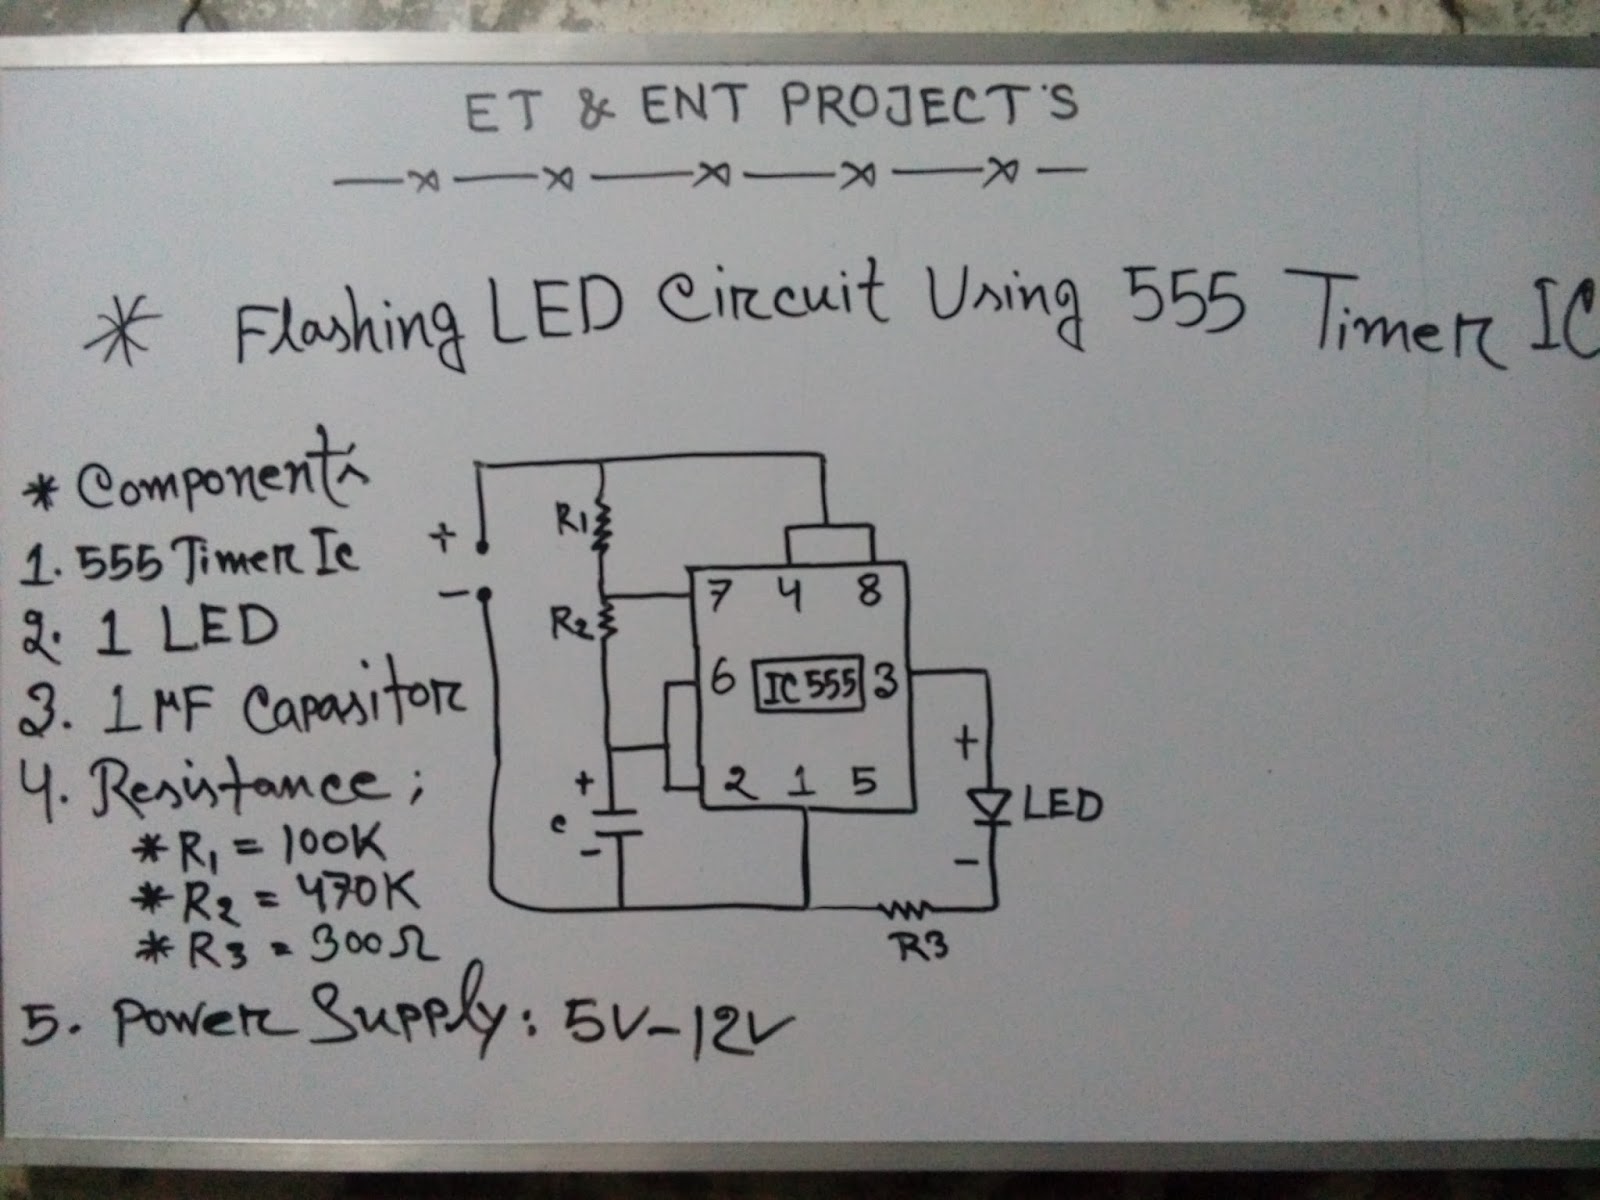 ET & ENT PROJECT'S
* Flashing LED Circuit Using 555 Timer IC
* Component's
1. 555 Timer Ic
2. 1 LED
3. 1 MF Capasitor
4. Resistance ;
* R1 = 100K
* R2 = 470K
* R3 = 300Ω
5. Power Supply : 5V-12V
+
-
R1
R2
7 4 8
6 IC 555 3
2 1 5
+
c
-
+
LED
-
R3